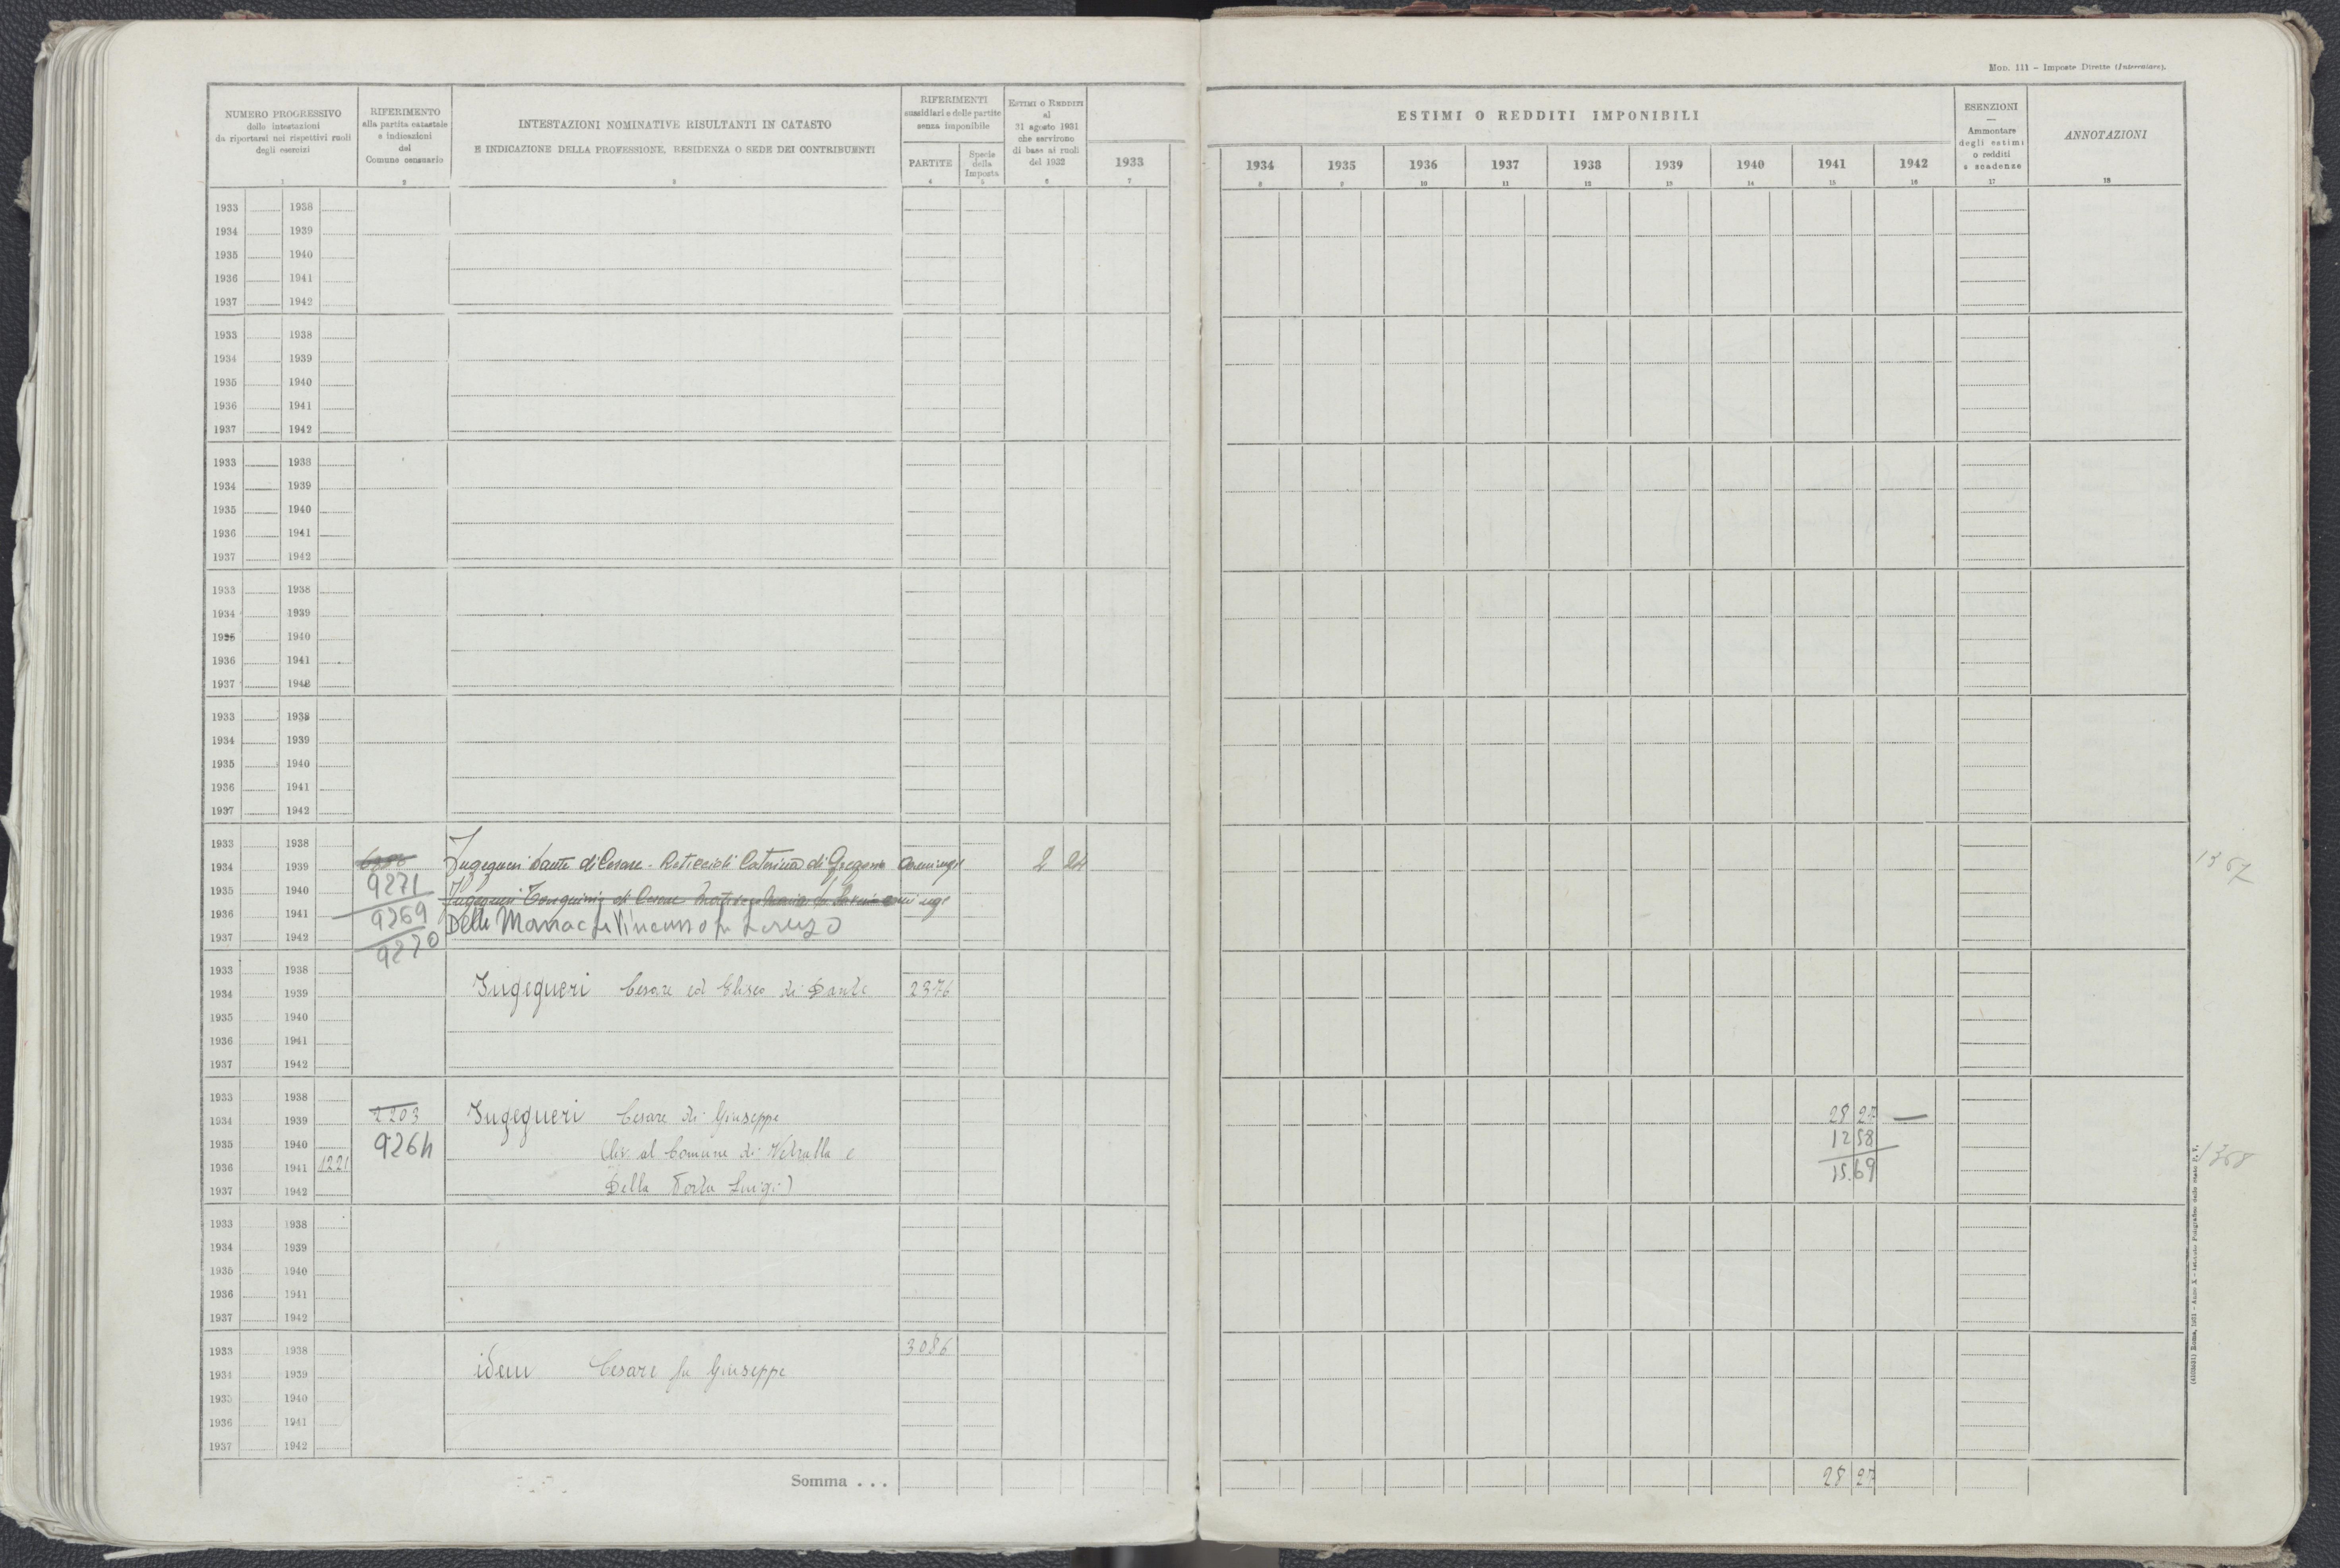 Mod. 111 – Imposte Dirette (Intercalare).
NUMERO PROGRESSIVO
delle intestazioni
da riportarsi nei rispettivi ruoli
degli esercizi
RIFERIMENTO
alla partita catastale
e indicazioni
del
Comune censuario
INTESTAZIONI NOMINATIVE RISULTANTI IN CATASTO
E INDICAZIONE DELLA PROFESSIONE, RESIDENZA O SEDE DEI CONTRIBUENTI
RIFERIMENTI
sussidiari e delle partite
senza imponibile
PARTITE
Specie
della
Imposta
ESTIMI O REDDITI
al
31 agosto 1931
che servirono
di base ai ruoli
del 1932
ESTIMI O REDDITI IMPONIBILI
1933 1934 1935 1936 1937 1938 1939 1940 1941 1942
ESENZIONI
—
Ammontare
degli estimi
o redditi
e scadenze
ANNOTAZIONI
1 2 3 4 5 6 7 8 9 10 11 12 13 14 15 16 17 18
1933 1938
1934 1939
1935 1940
1936 1941
1937 1942
1933 1938
1934 1939
1935 1940
1936 1941
1937 1942
1933 1938
1934 1939
1935 1940
1936 1941
1937 1942
1933 1938
1934 1939
1935 1940
1936 1941
1937 1942
1933 1938
1934 1939
1935 1940
1936 1941
1937 1942
1933 1938
1934 1939 Ingegneri Sante di Cesare - Caterina di 2 24 1367
1935 1940 9271 Ingegneri di Cesare
1936 1941 9269 Delle Monache Vincenzo fu
1937 1942 9270
1933 1938
1934 1939 Ingegneri Cesare ed Eliseo di Dante 2376
1935 1940
1936 1941
1937 1942
1933 1938
1934 1939 2203 Ingegneri Cesare di Giuseppe 28 27 —
1935 1940 9264 (liv. al Comune di Vetralla e 12 58 1368
1936 1941 1221 15.69
1937 1942 Della Porta Luigi)
1933 1938
1934 1939
1935 1940
1936 1941
1937 1942
1933 1938 3086
1934 1939 idem Cesare fu Giuseppe
1935 1940
1936 1941
1937 1942
Somma . . . 28 27